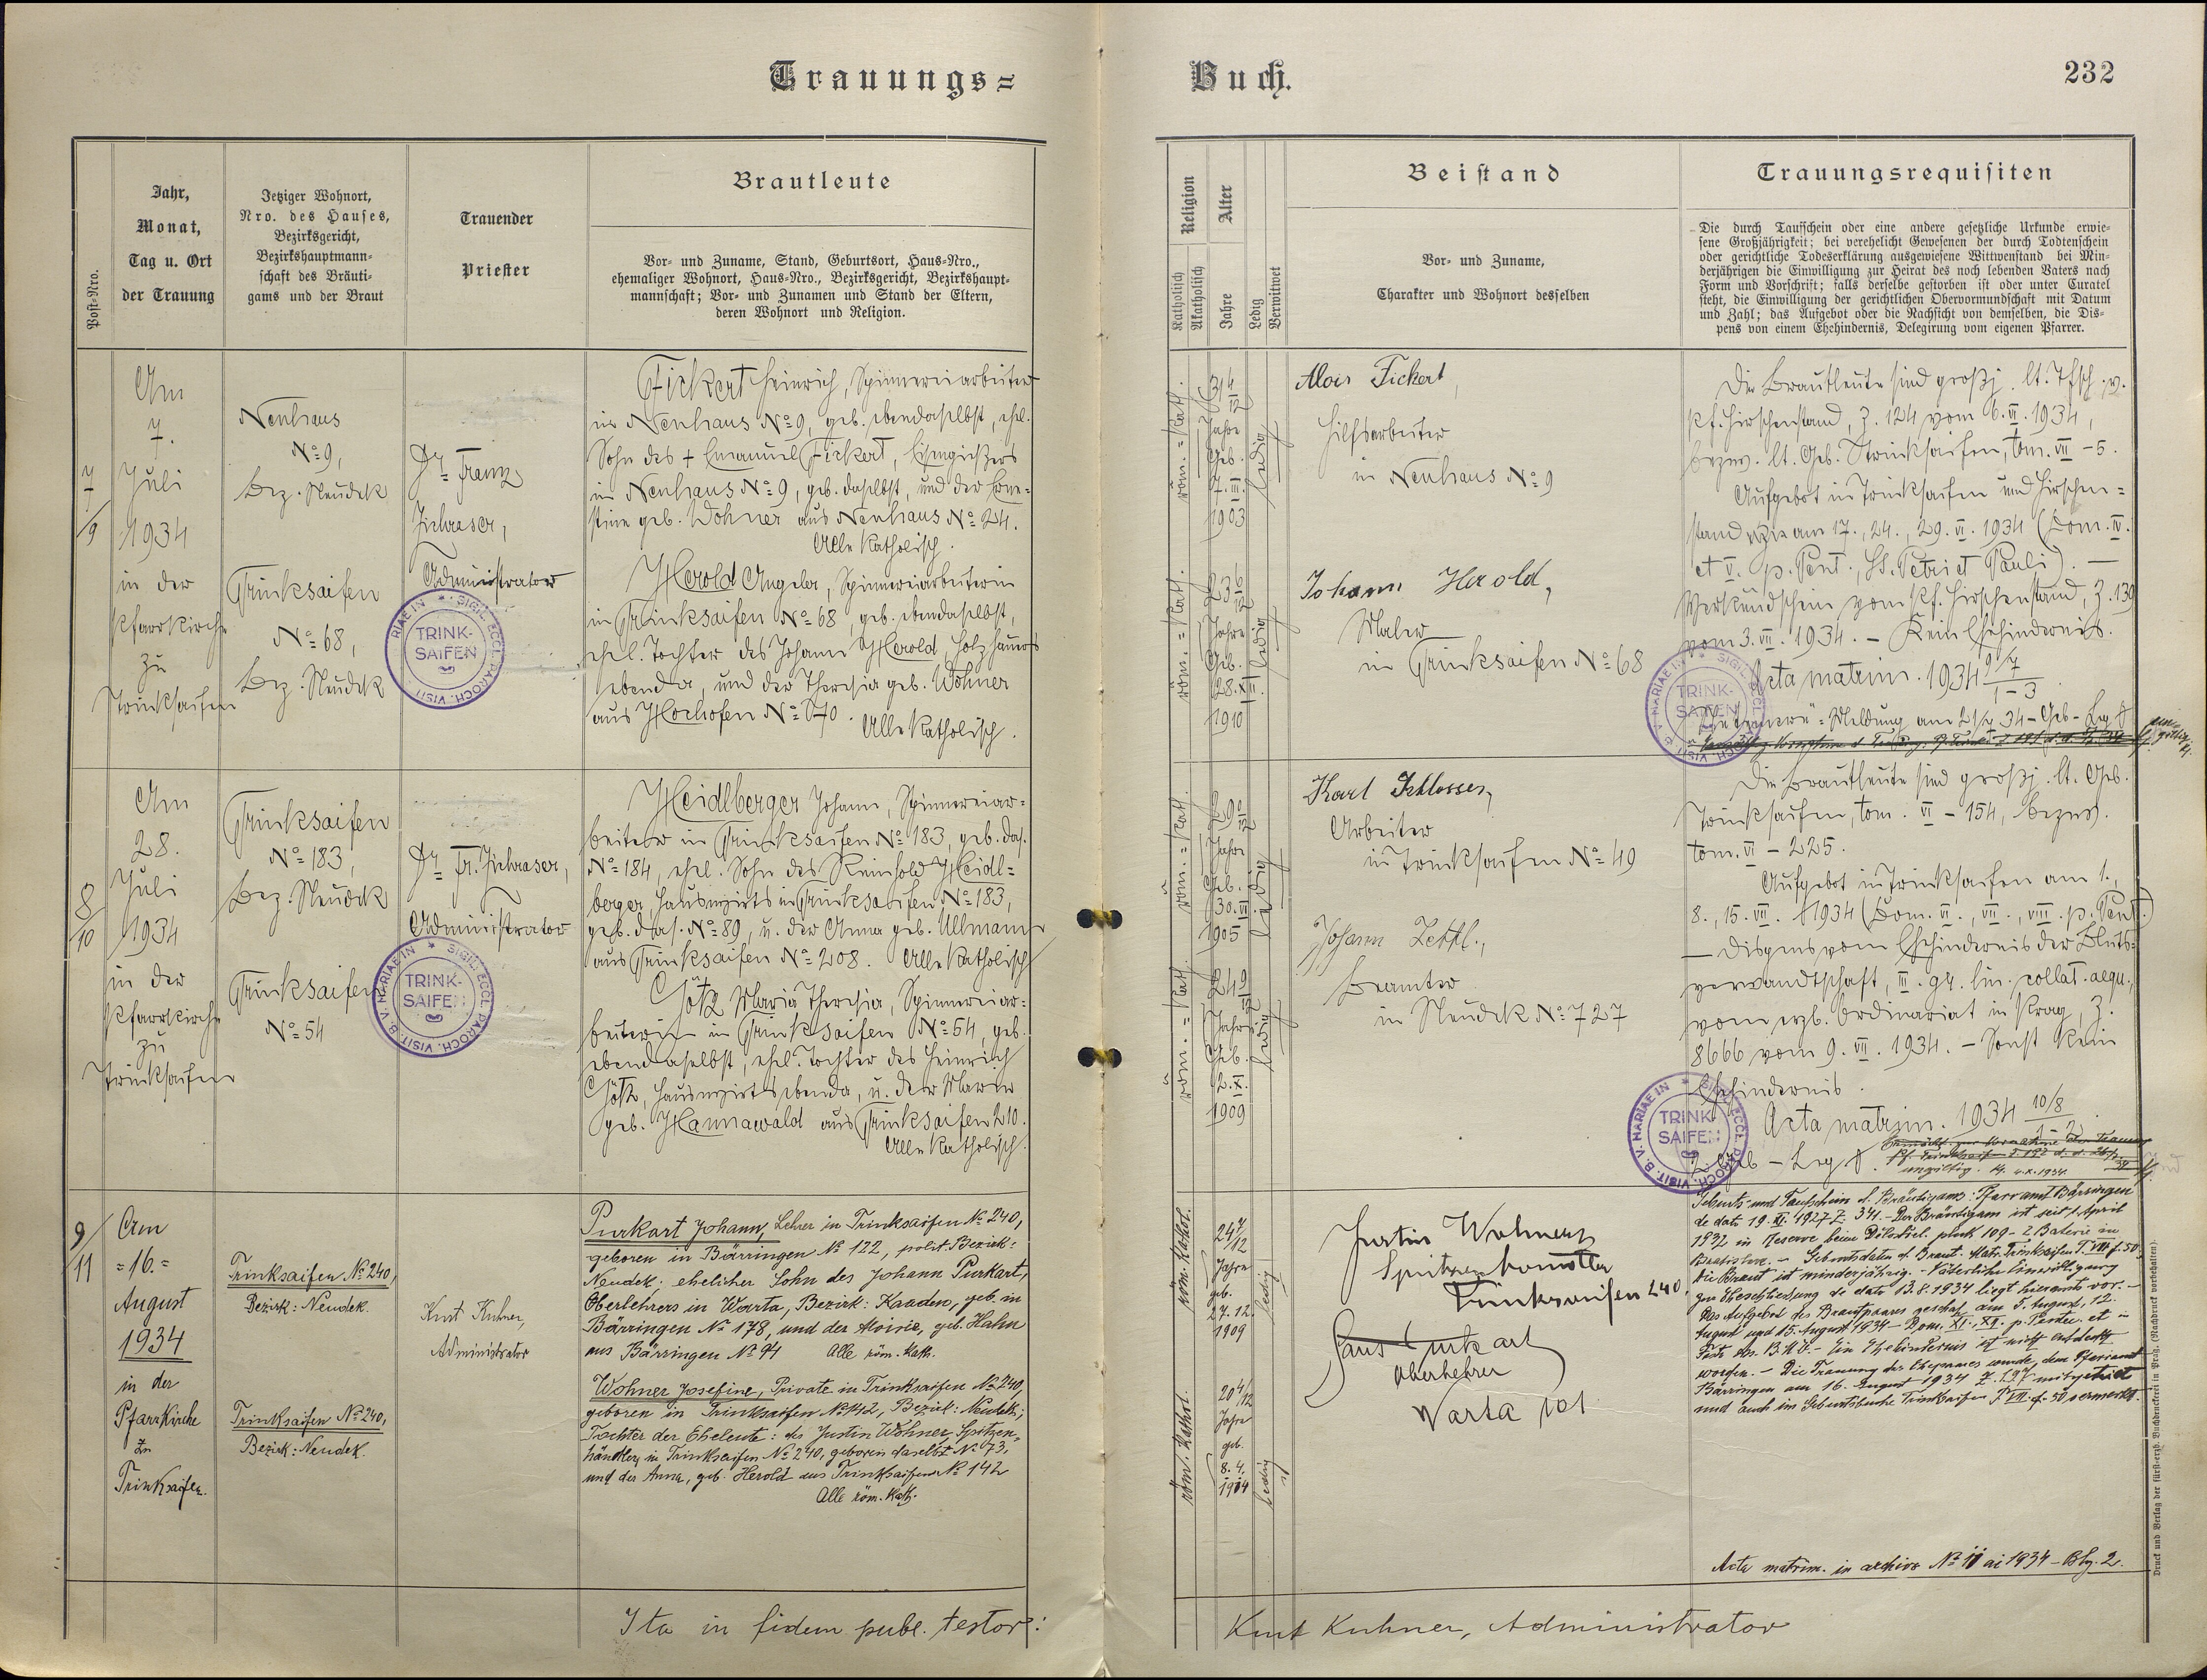 Trauungs=
Buch.
232
Post-Nro.
Jahr,
Monat,
Tag u. Ort
der Trauung
Jetziger Wohnort,
Nro. des Hauses,
Bezirksgericht,
Bezirkshauptmann-
schaft des Bräuti-
gams und der Braut
Trauender
Priester
Brautleute
Vor- und Zuname, Stand, Geburtsort, Haus-Nro.,
ehemaliger Wohnort, Haus-Nro., Bezirksgericht, Bezirkshaupt-
mannschaft; Vor- und Zunamen und Stand der Eltern,
deren Wohnort und Religion.
Religion
Katholisch
Akatholisch
Alter
Jahre
Ledig
Verwitwet
Beistand
Vor- und Zuname,
Charakter und Wohnort desselben
Trauungsrequisiten
Die durch Taufschein oder eine andere gesetzliche Urkunde erwie-
sene Großjährigkeit; bei verehelicht Gewesenen der durch Todtenschein
oder gerichtliche Todeserklärung ausgewiesene Wittwenstand bei Min-
derjährigen die Einwilligung zur Heirat des noch lebenden Vaters nach
Form und Vorschrift; falls derselbe gestorben ist oder unter Curatel
steht, die Einwilligung der gerichtlichen Obervormundschaft mit Datum
und Zahl; das Aufgebot oder die Nachsicht von demselben, die Dis-
pens von einem Ehehindernis, Delegirung vom eigenen Pfarrer.
7
/9
Am
7.
Juli
1934
in der
Pfarrkirche
zu
Trinksaifen
Neuhaus
No 9,
Bez. Neudek
Trinksaifen
No 68,
Bez. Neudek
Dr Franz
Administrator
TRINK-
SAIFEN
Fickert Heinrich, Spinnereiarbeiter
in Neuhaus No 9, geb. ebendaselbst, ehel.
Sohn des + Emanuel Fickert, Eisengießers
in Neuhaus No 9, geb. daselbst, und der Erne-
stine geb. Wohner aus Neuhaus No 24.
Alle katholisch.
Herold Angela, Spinnereiarbeiterin
in Trinksaifen No 68, geb. ebendaselbst,
ehel. Tochter des Johann Herold, Holzhauers
ebenda, und der Theresia geb. Wohner
aus Hochofen No
Alle katholisch.
röm.=kath.
31 4/12
Jahre
Geb.
7.III.
1903
ledig
röm.=kath.
23 6/12
Jahre
Geb.
28.XII.
1910
ledig
Alois Fickert,
Hilfsarbeiter
in Neuhaus No 9
Johann Herold,
Maler
in Trinksaifen No 68
Die Brautleute sind großj. lt. Tfsch. v.
Pf. Hirschenstand, Z. 124 vom 6.VI.1934,
bezw. lt. Geb. Trinksaifen, tom. VII - 5.
Aufgebot in Trinksaifen und Hirschen=
stand am 17., 24., 29. VI. 1934 (Dom. IV.
et V. p. Pent., SS. Petri et Pauli). —
Verkündschein vom Pf. Hirschenstand, Z. 139
vom 3.VII.1934. - Kein Ehehindernis.
Acta matrim. 1934 9/7
1-3
TRINK-
SAIFEN
8
/10
Am
28.
Juli
1934
in der
Pfarrkirche
zu
Trinksaifen
Trinksaifen
No 183,
Bez. Neudek
Trinksaifen
No 54
Dr Fr.
Administrator
TRINK-
SAIFEN
Heidlberger Johann, Spinnereiar-
beiter in Trinksaifen No 183, geb. das.
No 184, ehel. Sohn des Reinhold Heidl=
berger, Hauswirts in Trinksaifen No 183,
geb. das. No 89, u. der Anna geb. Ullmann
aus Trinksaifen No 208. Alle katholisch
Götz Maria Theresia, Spinnereiar-
beiterin in Trinksaifen No 54, geb.
ebendaselbst, ehel. Tochter des Heinrich
Götz, Hauswirts ebenda, u. der Marie
geb. Hannawald aus Trinksaifen 210.
Alle katholisch.
röm.=kath.
29 0/12
Jahre
Geb.
30.VI.
1905
ledig
röm.=kath.
24 9/12
Jahre
Geb.
2.X.
1909
ledig
Karl Schlosser,
Arbeiter
in Trinksaifen No 49
Johann Zettl.,
Beamter
in Neudek No 727
Die Brautleute sind großj. lt. Geb.
Trinksaifen, tom. VI - 154, bezw.
tom. VI - 225.
Aufgebot in Trinksaifen am 1.,
8., 15. VII. 1934 (Dom. VI., VII., VIII. p. Pent.)
— Dispens vom Ehehindernis der Bluts-
verwandtschaft, III. gr. lin. collat. aequ.,
vom erzb. Ordinariat in Prag, Z.
8666 vom 9. VII. 1934. - Sonst kein
Ehehindernis.
Acta matrim. 1934 10/8
1-2
TRINK-
SAIFEN
ungiltig.
9/
11
Am
=16.=
August
1934
in der
Pfarrkirche
zu
Trinksaifen.
Trinksaifen No 240,
Bezirk: Neudek.
Trinksaifen No 240,
Bezirk: Neudek
Kurt Kuhner,
Administrator
Purkart Johann, Lehrer in Trinksaifen No 240,
geboren in Bärringen No 122, polit. Bezirk:
Neudek; ehelicher Sohn des Johann Purkart,
Oberlehrers in Warta, Bezirk: Kaaden, geb. in
Bärringen No 178, und der Aloisie, geb. Hahn
aus Bärringen No 94 Alle röm. kath.
Wohner Josefine, Private in Trinksaifen No 240,
geboren in Trinksaifen No 142, Bezirk: Neudek;
Tochter der Eheleute: des Justin Wohner, Spitzen-
händlers in Trinksaifen No 240, geboren daselbst No 73,
und der Anna, geb. Herold aus Trinksaifen No 142
Alle röm. kath.
röm. kathol.
24 7/12
Jahre
geb.
27.12.
1909
ledig
röm. kathol.
20 4/12
Jahre
geb.
8.4.
1914
ledig
Justin Wohner
Spitzenhändler
Trinksaifen 240.
Hans Purkart
Oberlehrer
Warta 101
Geburts- und Taufschein d. Bräutigams: Pfarramt Bärringen
de dato 19. XI. 1927 Z. 341. - Der Bräutigam ist seit 1. April
1932 in Reserve beim pluk 109 - 2 Baterie in
Bratislava. - Geburtsdaten d. Braut: Matr. Trinksaifen T. VIII f. 50
Die Braut ist minderjährig. - Väterliche Einwilligung
zur Eheschließung de dato 13.8.1934 liegt hieramts vor. -
Das Aufgebot des Brautpaares geschah am 5. August, 12.
August und 15. August 1934 - Dom. XI., XII. p. Pentec. et in
Festo B.M.V. - Ein Ehehindernis ist nicht entdeckt
worden. - Die Trauung des Ehepaares wurde dem Pfarramt
Bärringen am 16. August 1934 Z. 197 mitgeteilt
und auch im Geburtsbuche Trinksaifen T. VII f. 50 vermerkt.
Acta matrim. in archivo No 11 ai 1934 - Blg. 2.
Ita in fidem publ. testor:
Kurt Kuhner, Administrator
Druck und Verlag der fürst-erzb. Buchdruckerei in Prag. (Nachdruck vorbehalten).